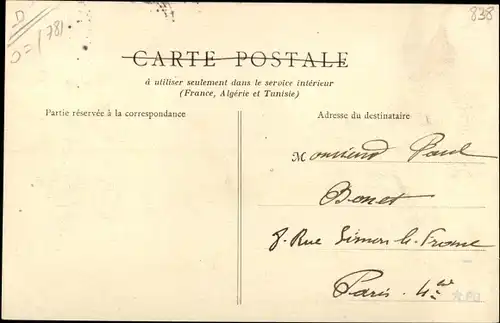 D
0=/781
838
CARTE POSTALE
à utiliser seulement dans le service intérieur
(France, Algérie et Tunisie)
Partie réservée à la correspondance
Adresse du destinataire
Monsieur Paul
Bonet
8. Rue Simon-le-Franc
Paris. 4e